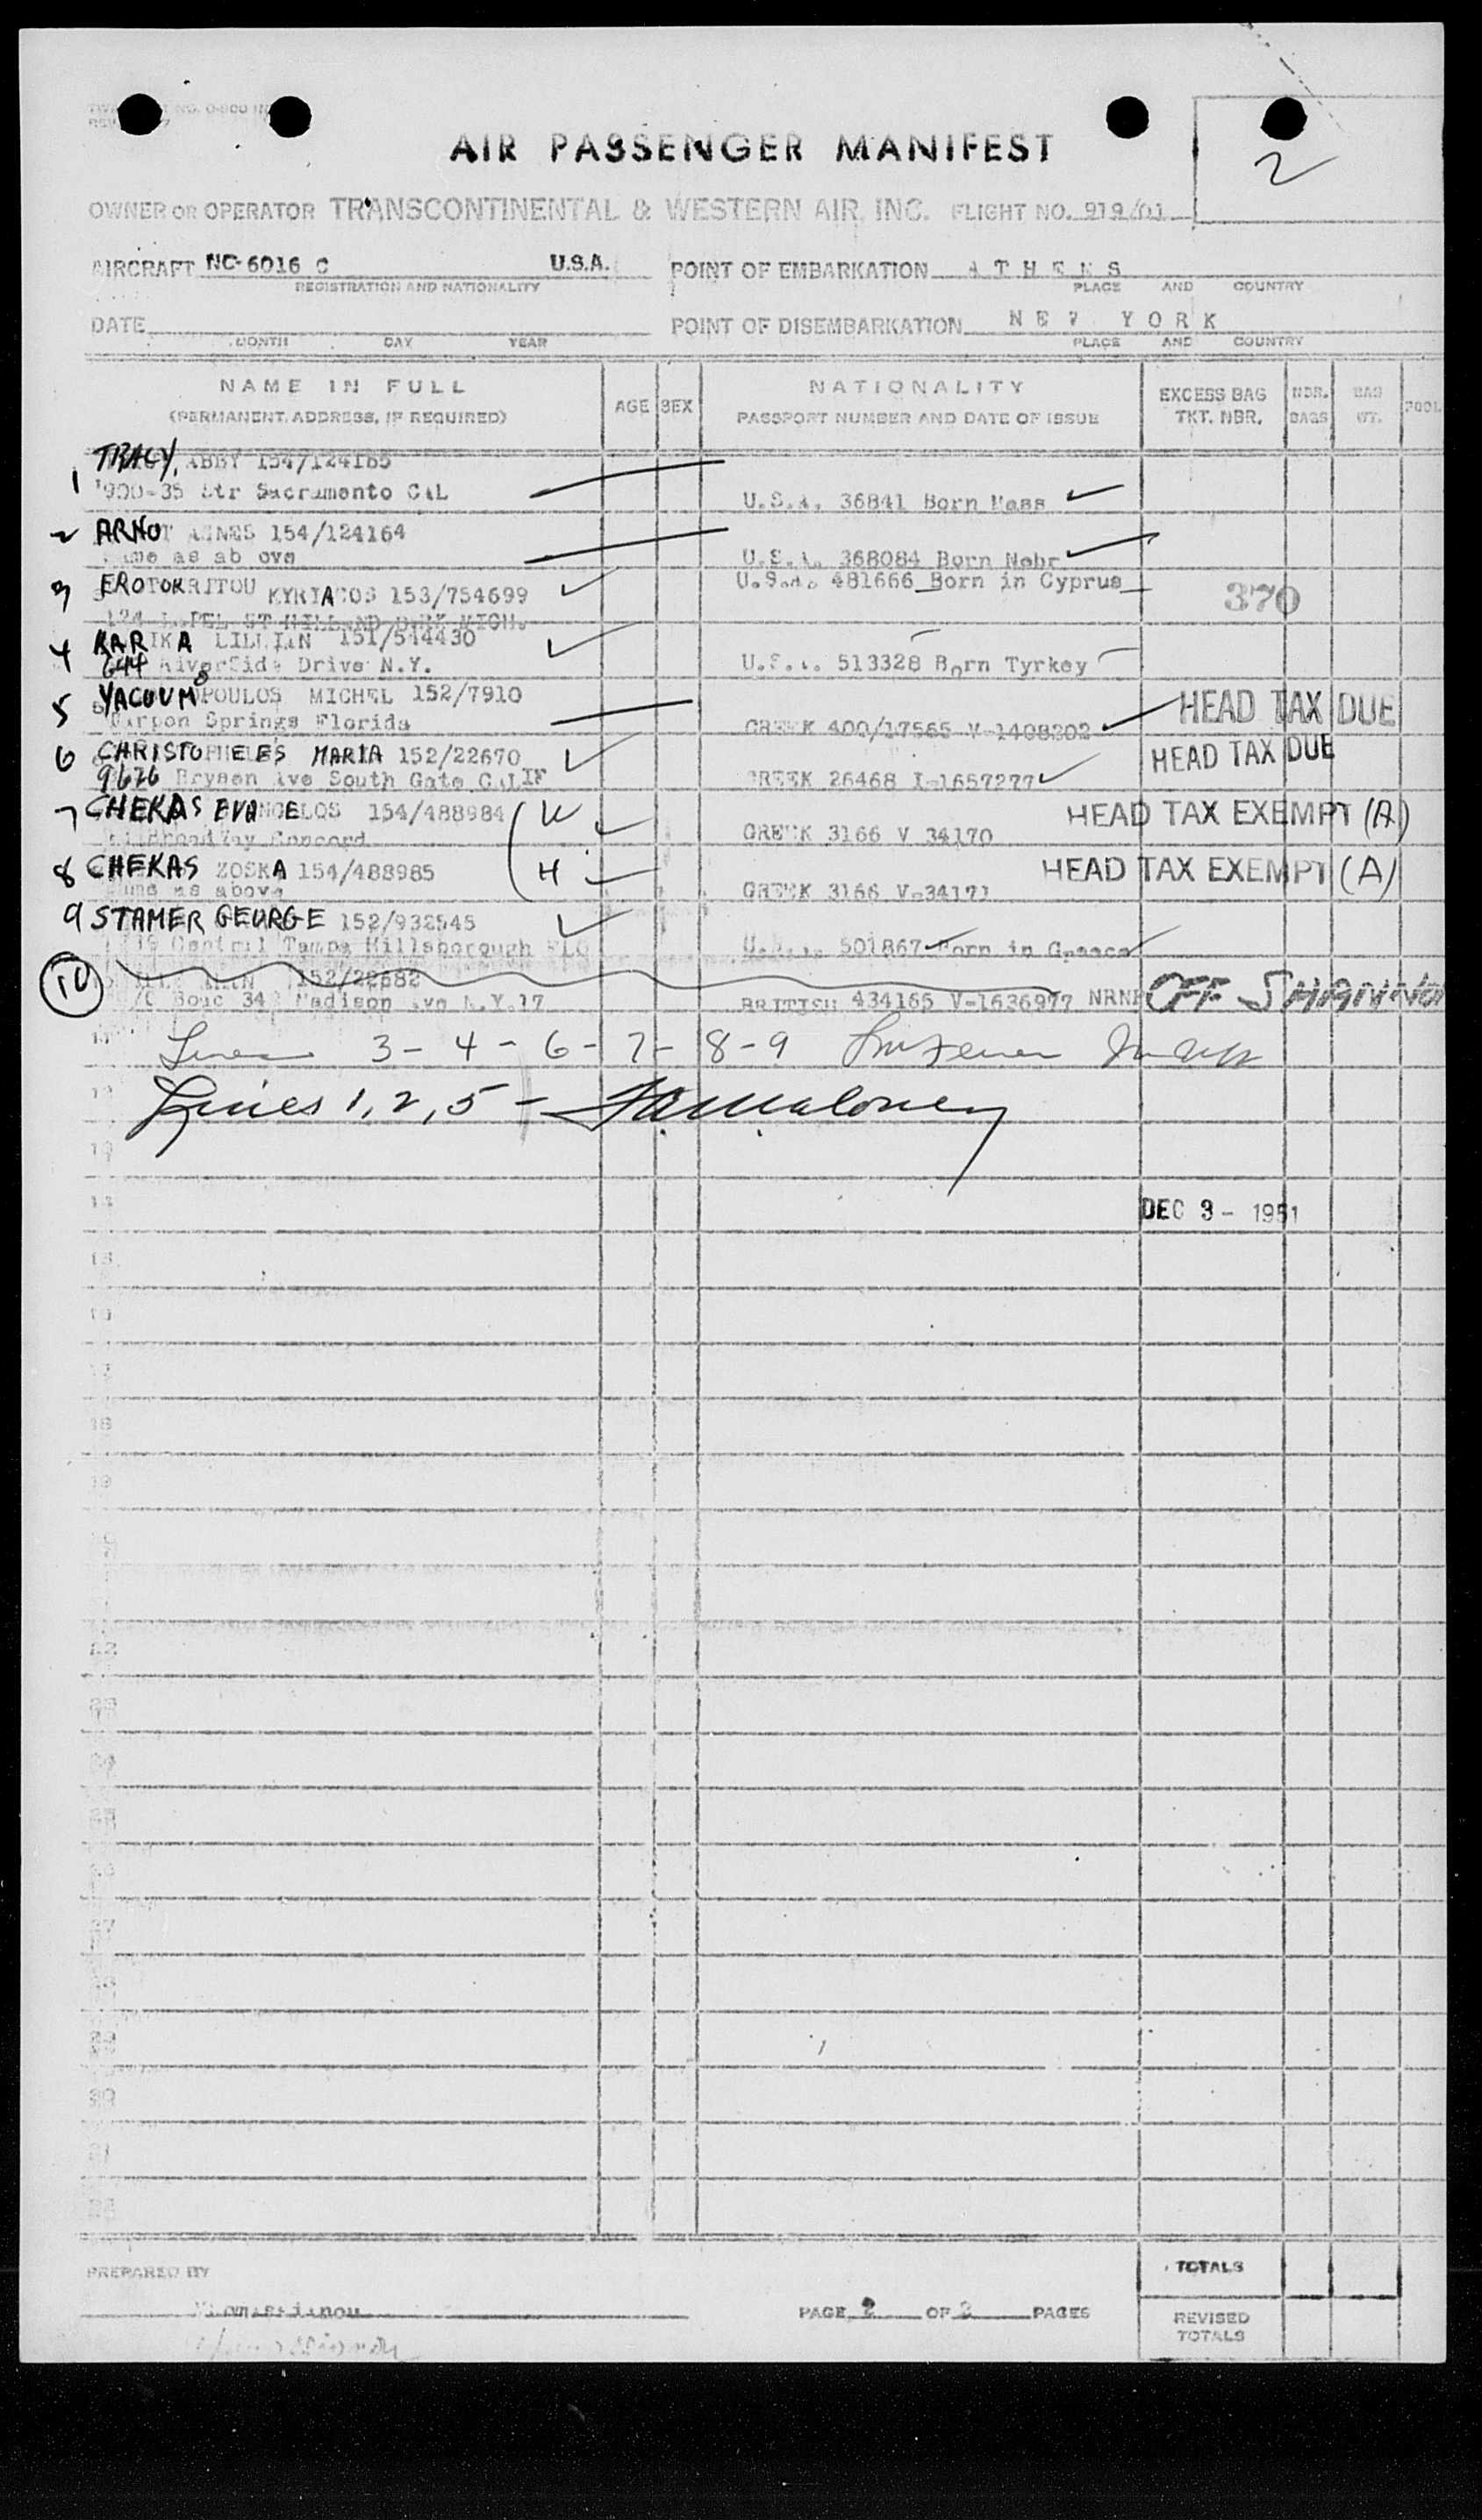 2
AIR PASSENGER MANIFEST
OWNER OR OPERATOR TRANSCONTINENTAL & WESTERN AIR, INC. FLIGHT NO. 919/01
AIRCRAFT NC-6016 C U.S.A. POINT OF EMBARKATION A T H E N S
REGISTRATION AND NATIONALITY PLACE AND COUNTRY
DATE POINT OF DISEMBARKATION N E W Y O R K
MONTH DAY YEAR PLACE AND COUNTRY
NAME IN FULL AGE SEX NATIONALITY EXCESS BAG NBR. BAG POOL
(PERMANENT ADDRESS, IF REQUIRED) PASSPORT NUMBER AND DATE OF ISSUE TKT. NBR. BAGS WT.
1 TRACY, ABBY 154/124165
1900-35 Str Sacramento CAL U.S.A. 36841 Born Mass
2 ARNOT AGNES 154/124164
Same as ab ove U.S.A. 368084 Born Nebr
3 EROTOKRITOU KYRIACOS 153/754699 U.S.A. 481666 Born in Cyprus 370
4 KARIKA LILLIAN 151/544430
644 RiverSide Drive N.Y. U.S.A. 513328 Born Tyrkey
5 YACOUMOPOULOS MICHEL 152/7910 HEAD TAX DUE
Tarpon Springs Florida GREEK 400/17565 V-1408202
6 CHRISTOPHELES MARIA 152/22670 HEAD TAX DUE
9626 Bryson Ave South Gate CALIF GREEK 26468 I-1657277
7 CHEKAS EVANGELOS 154/488984 W HEAD TAX EXEMPT (A)
Broadway Concord GREEK 3166 V 34170
8 CHEKAS ZOSKA 154/488985 H HEAD TAX EXEMPT (A)
Same as above GREEK 3166 V-34171
9 STAMER GEORGE 152/932545
Central Tampa Hillsborough FLO U.S.A. 501867 Born in Greece
10 152/22682 OFF SHANNON
Madison Ave N.Y.17 BRITISH 434165 V-1636977 NRNP
Lines 3-4-6-7-8-9
Lines 1,2,5-
DEC 3 - 1951
PREPARED BY TOTALS
PAGE 2 OF 2 PAGES REVISED
TOTALS